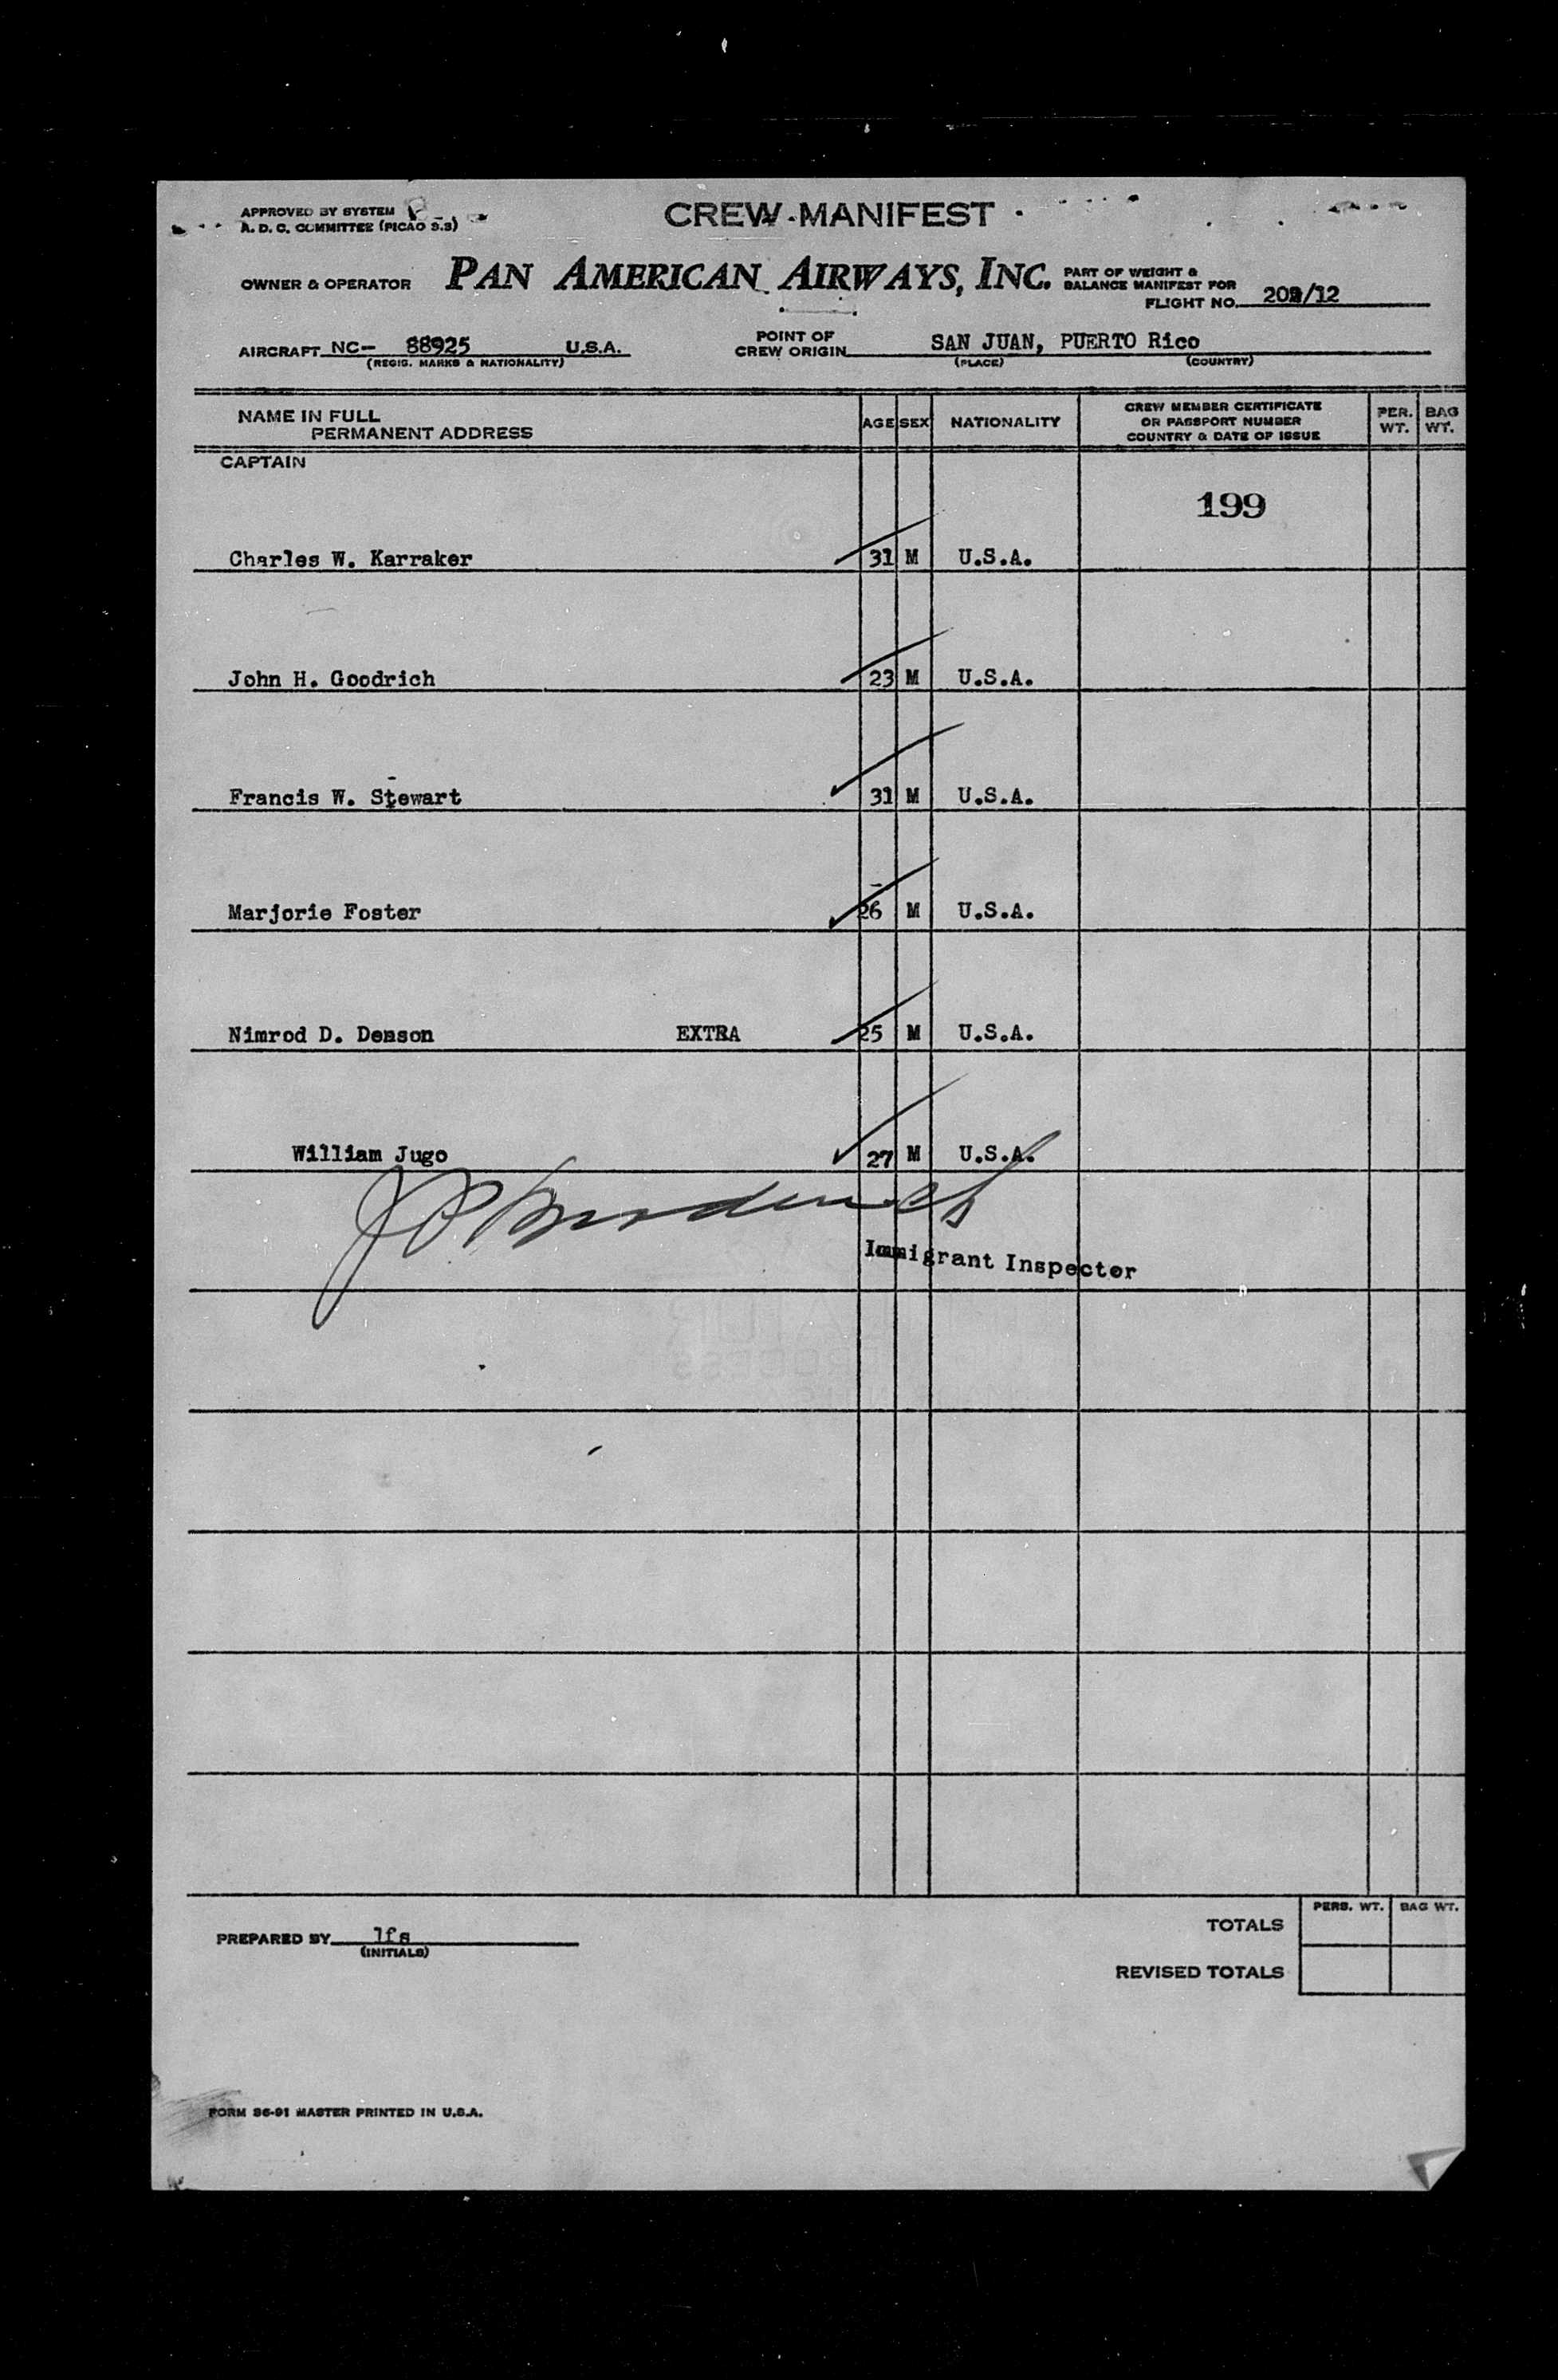 APPROVED BY SYSTEM
A. D. C. COMMITTEE (PICAO 9.3)
CREW MANIFEST
OWNER & OPERATOR PAN AMERICAN AIRWAYS, INC. PART OF WEIGHT &
BALANCE MANIFEST FOR
FLIGHT NO. /12
AIRCRAFT NC- 88925 U.S.A. POINT OF
CREW ORIGIN SAN JUAN, PUERTO Rico
(REGIS. MARKS & NATIONALITY) (PLACE) (COUNTRY)
NAME IN FULL
PERMANENT ADDRESS
AGE SEX NATIONALITY
CREW MEMBER CERTIFICATE
OR PASSPORT NUMBER
COUNTRY & DATE OF ISSUE
PER.
WT.
BAG
WT.
CAPTAIN
199
Charles W. Karraker 31 M U.S.A.
John H. Goodrich 23 M U.S.A.
Francis W. Stewart 31 M U.S.A.
Marjorie Foster 26 M U.S.A.
Nimrod D. Denson EXTRA 25 M U.S.A.
William Jugo 27 M U.S.A.
Immigrant Inspector
PERS. WT. BAG WT.
TOTALS
PREPARED BY lfs
(INITIALS)
REVISED TOTALS
FORM 96-91 MASTER PRINTED IN U.S.A.